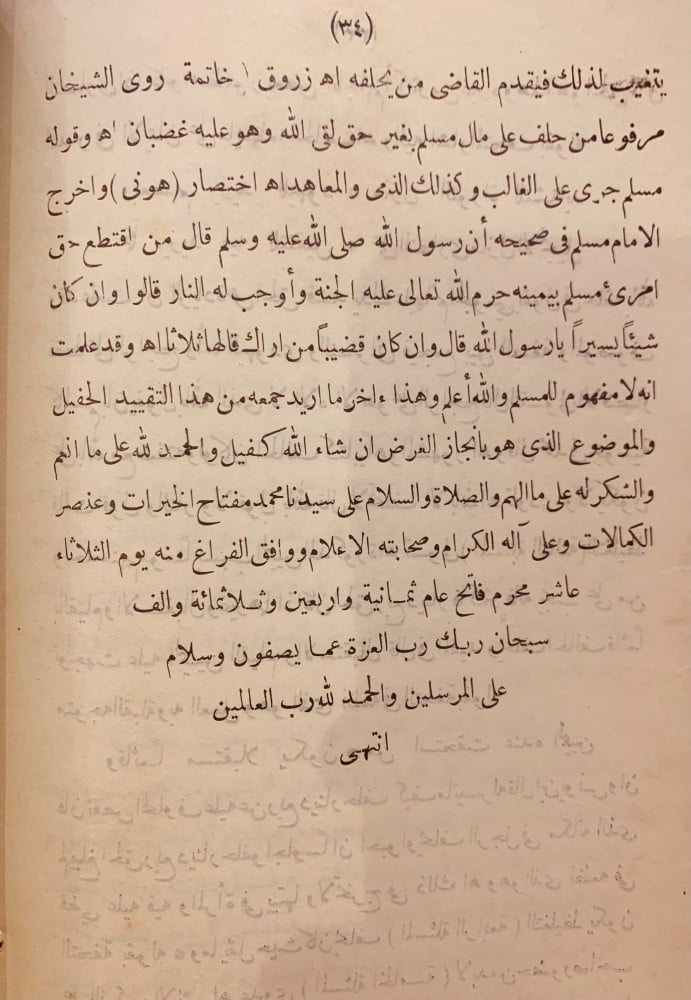 (٣٤)
يتغيب لذلك فيقدم القاضى من يحلفه اه زروق اه خاتمة روى الشيخان
مرفوعا من حلف على مال مسلم بغير حق لقى الله وهو عليه غضبان اه وقوله
مسلم جرى على الغالب وكذلك الذمى والمعاهد اه اختصار (هونى) واخرج
الامام مسلم فى صحيحه أن رسول الله صلى الله عليه وسلم قال من اقتطع حق
امرئ مسلم بيمينه حرم الله تعالى عليه الجنة وأوجب له النار قالوا وان كان
شيئاً يسيراً يارسول الله قال وان كان قضيباً من اراك قالها ثلاثا اه وقد علمت
انه لا مفهوم للمسلم والله أعلم وهذا ءاخر ما اريد جمعه من هذا التقييد الحفيل
والموضوع الذى هو بانجاز الغرض ان شاء الله كفيل والحمد لله على ما انعم
والشكر له على ما الهم والصلاة والسلام على سيدنا محمد مفتاح الخيرات وعنصر
الكمالات وعلى آله الكرام وصحابته الاعلام ووافق الفراغ منه يوم الثلاثاء
عاشر محرم فاتح عام ثمانية واربعين وثلاثمائة والف
سبحان ربك رب العزة عما يصفون وسلام
على المرسلين والحمد لله رب العالمين
انتهى